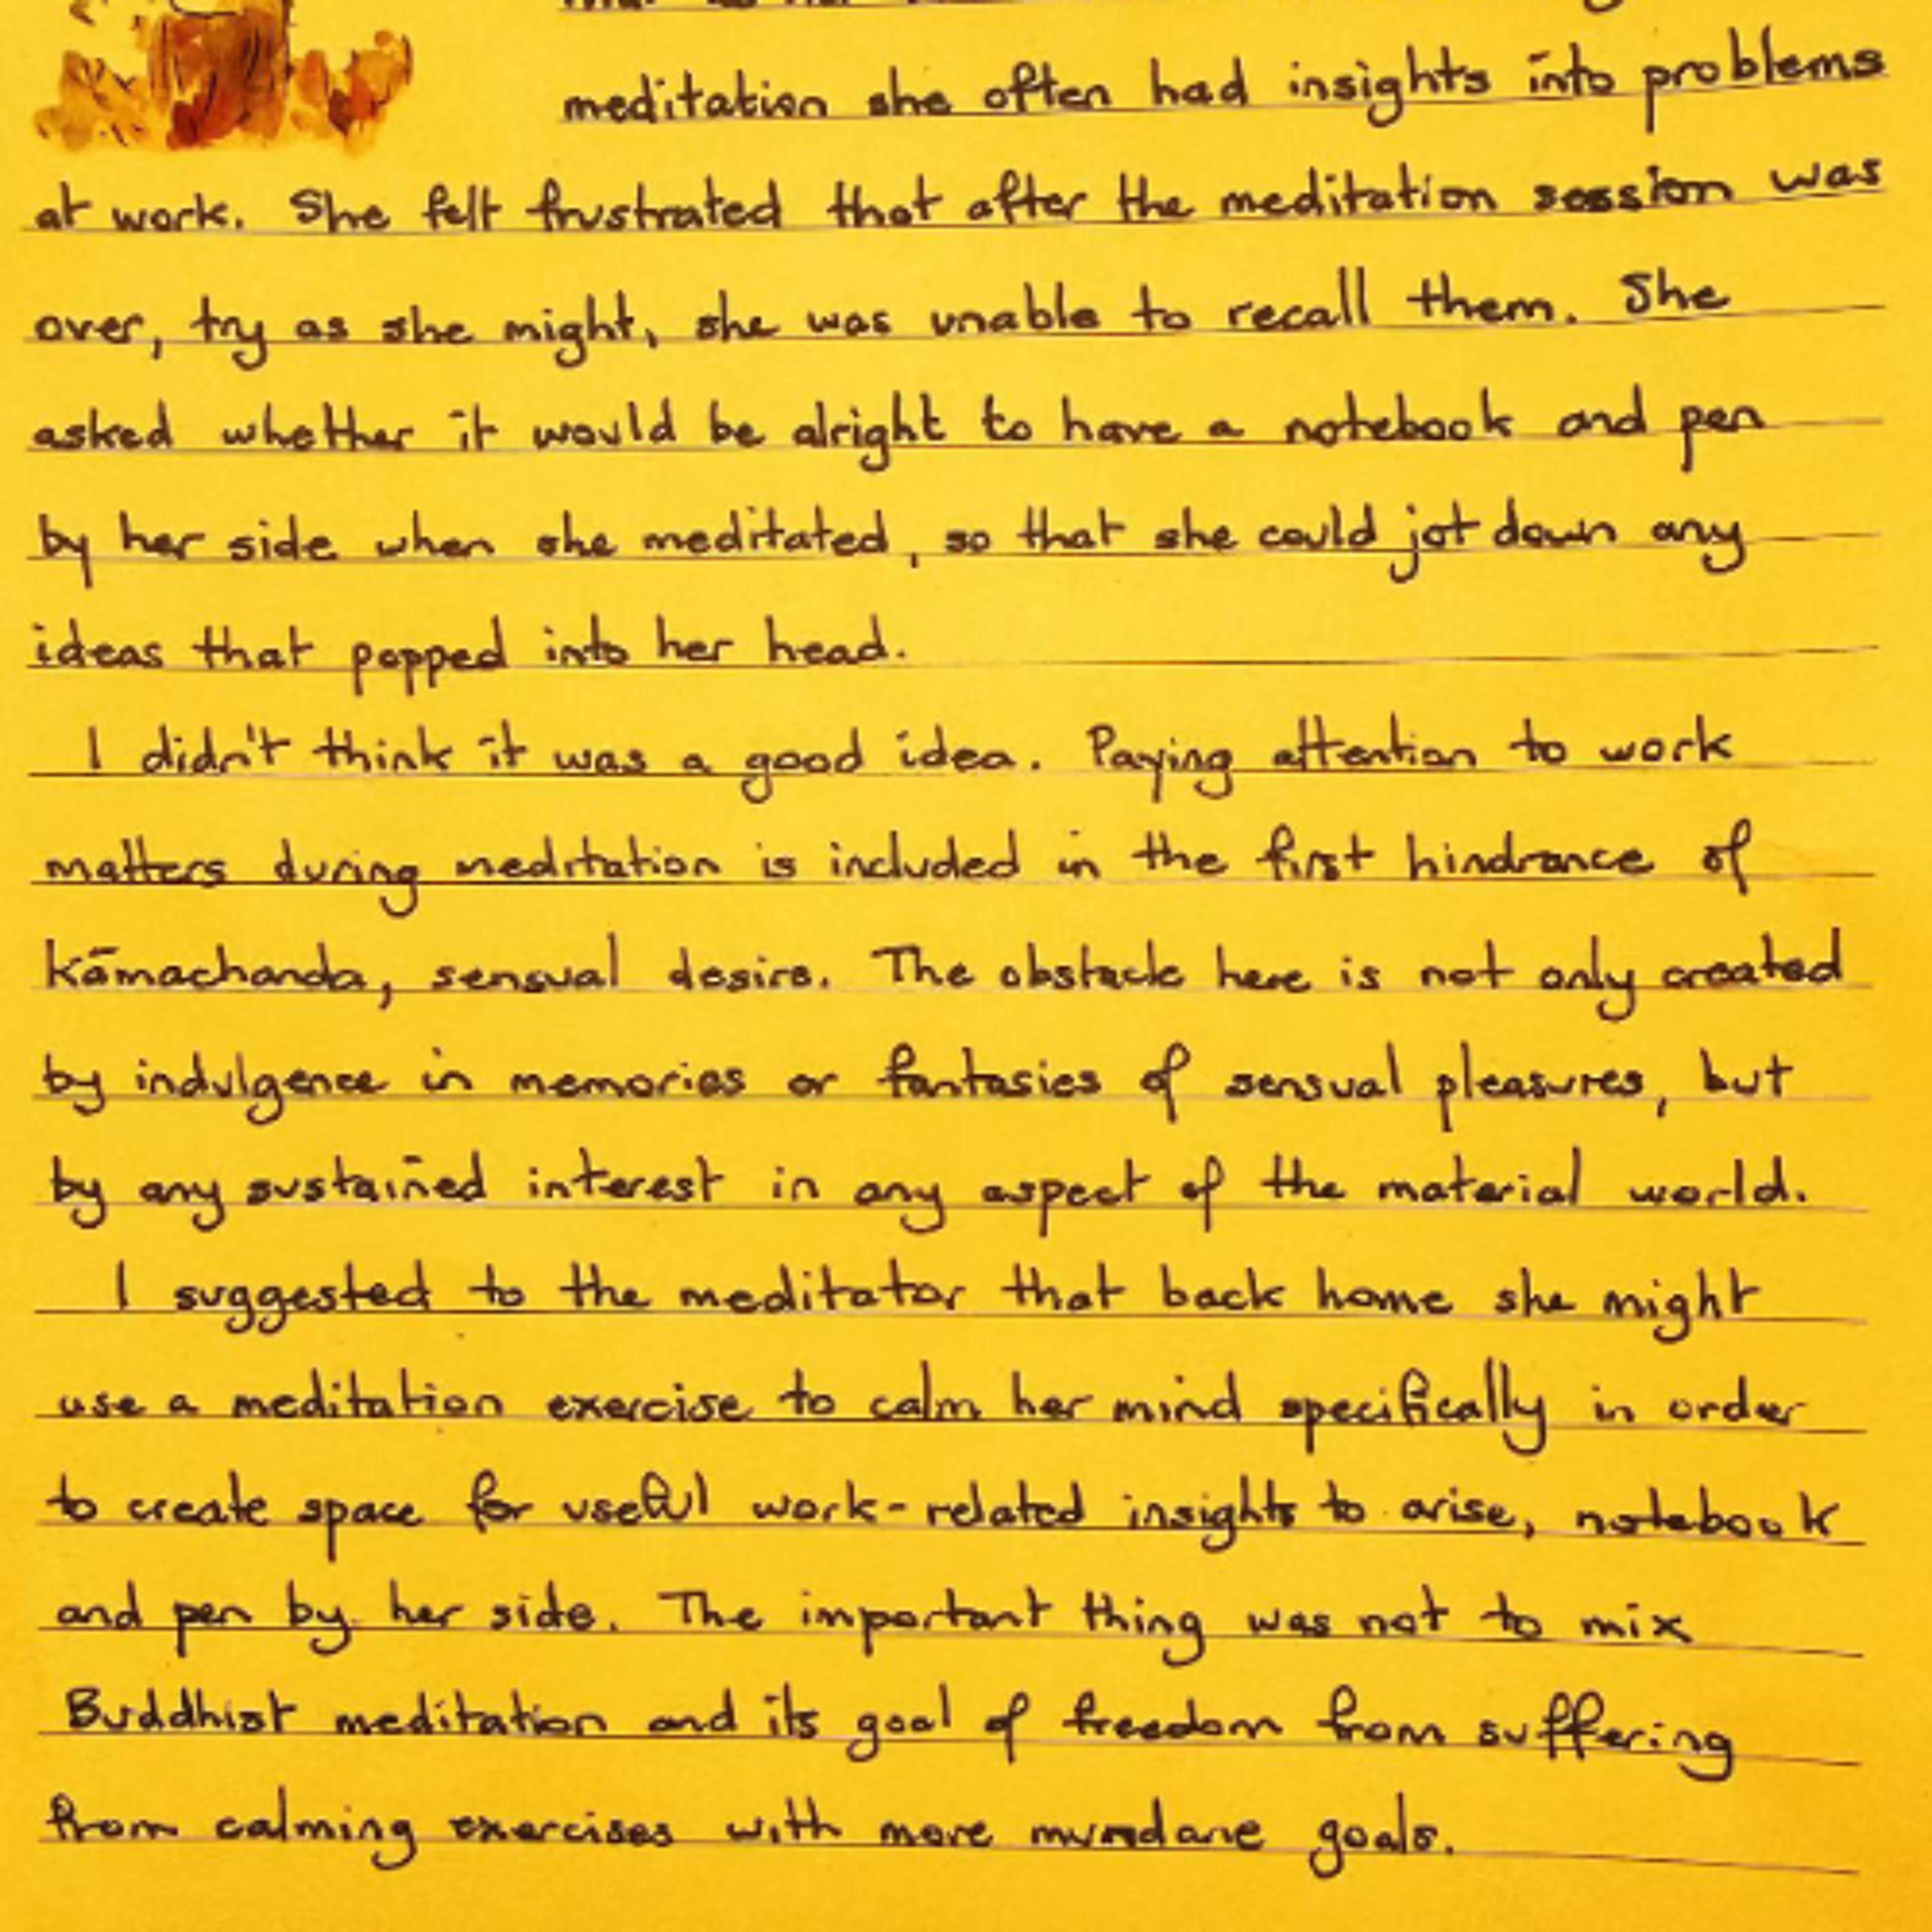 meditation she often had insights into problems
at work. She felt frustrated that after the meditation session was
over, try as she might, she was unable to recall them. She
asked whether it would be alright to have a notebook and pen
by her side when she meditated, so that she could jot down any
ideas that popped into her head.
I didn't think it was a good idea. Paying attention to work
matters during meditation is included in the first hindrance of
kāmachanda, sensual desire. The obstacle here is not only created
by indulgence in memories or fantasies of sensual pleasures, but
by any sustained interest in any aspect of the material world.
I suggested to the meditator that back home she might
use a meditation exercise to calm her mind specifically in order
to create space for useful work-related insights to arise, notebook
and pen by her side. The important thing was not to mix
Buddhist meditation and its goal of freedom from suffering
from calming exercises with more mundane goals.